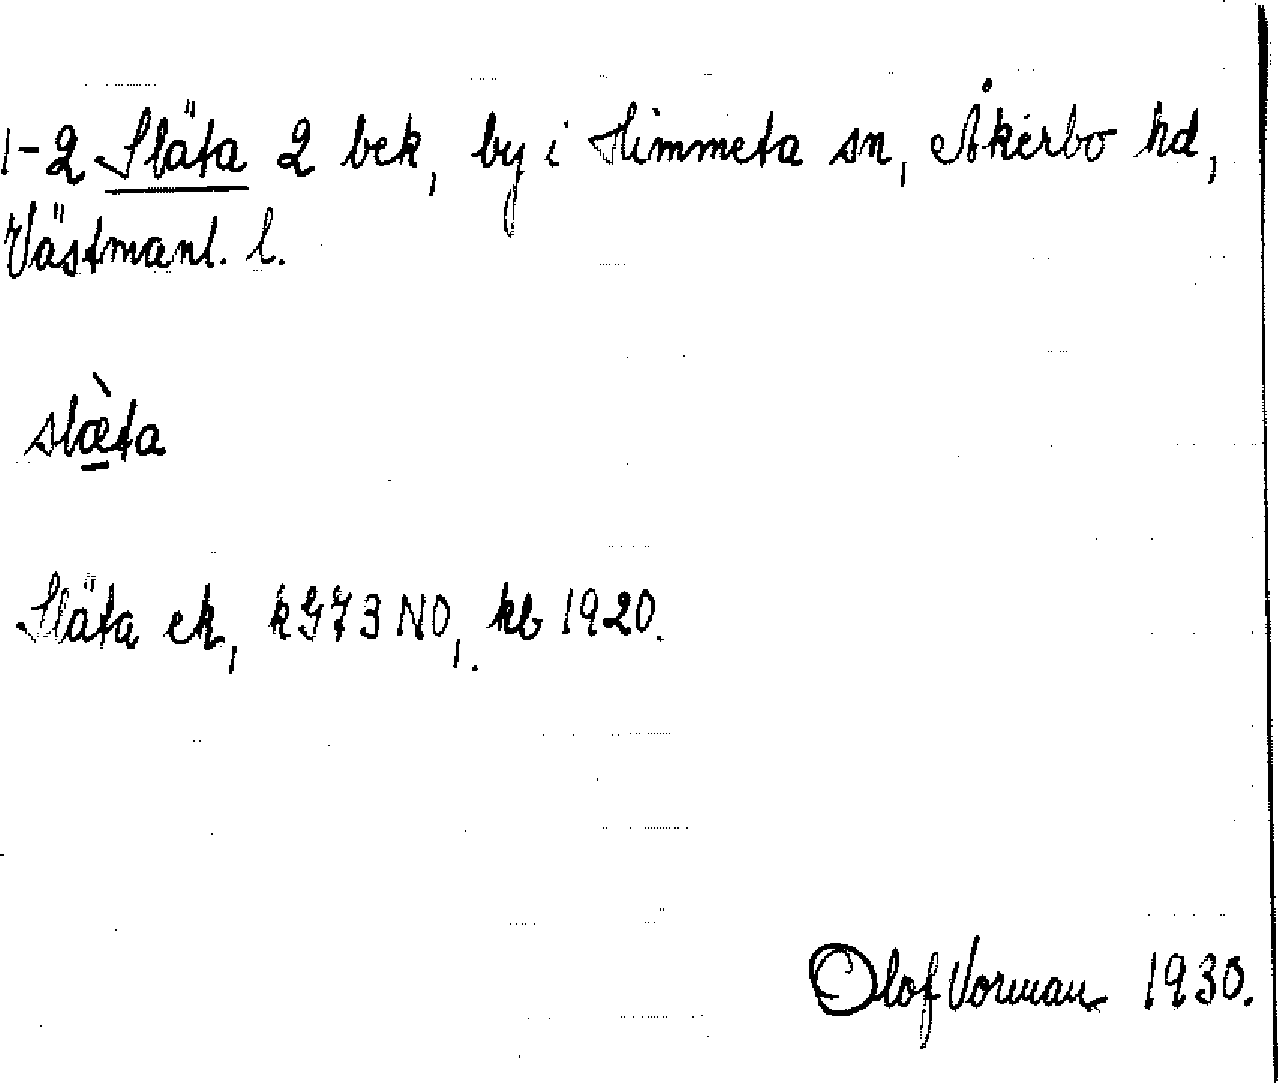 1-2 Släta 2 bek, by i Himmeta sn, Åkerbo hd,
Västmanl. l.
slæ̠̀ta
Släta ek, k973NO, kb 1920.
Olof Vorman 1930.